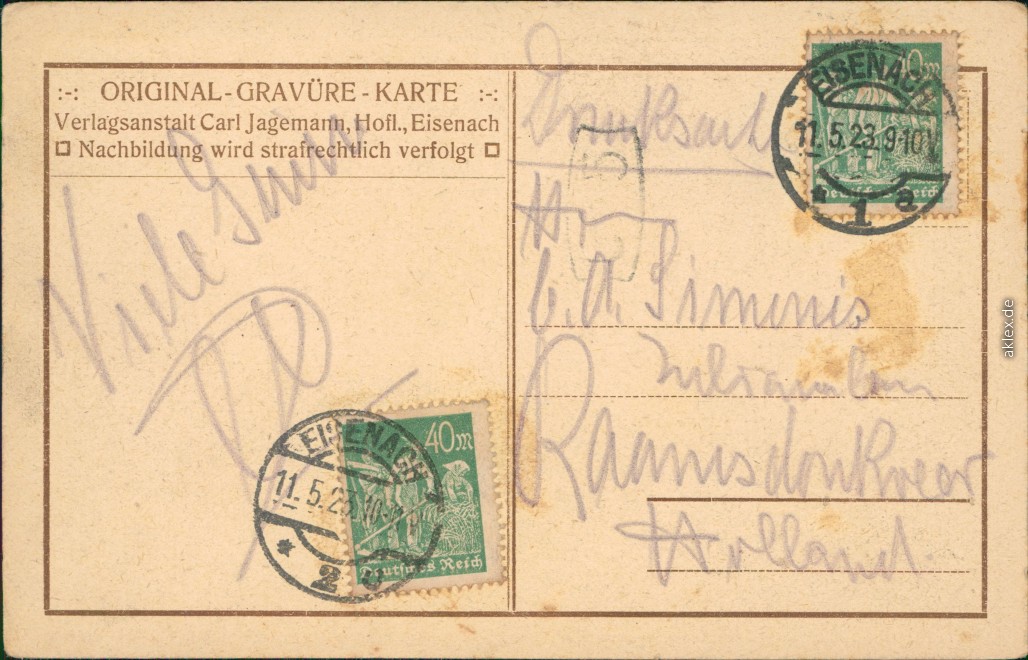 :-: ORIGINAL-GRAVÜRE-KARTE :-:
Verlagsanstalt Carl Jagemann, Hofl., Eisenach
Nachbildung wird strafrechtlich verfolgt
Viele Grüsse
40m
Deutsches Reich
EISENACH
11.5.23.10-11V
* 2
Drucksache
40m
Deutsches Reich
EISENACH
11.5.23.9-10V
* 1 a
Herrn
C. A. Simonis
Raamsdonkveer
Holland.
aklex.de